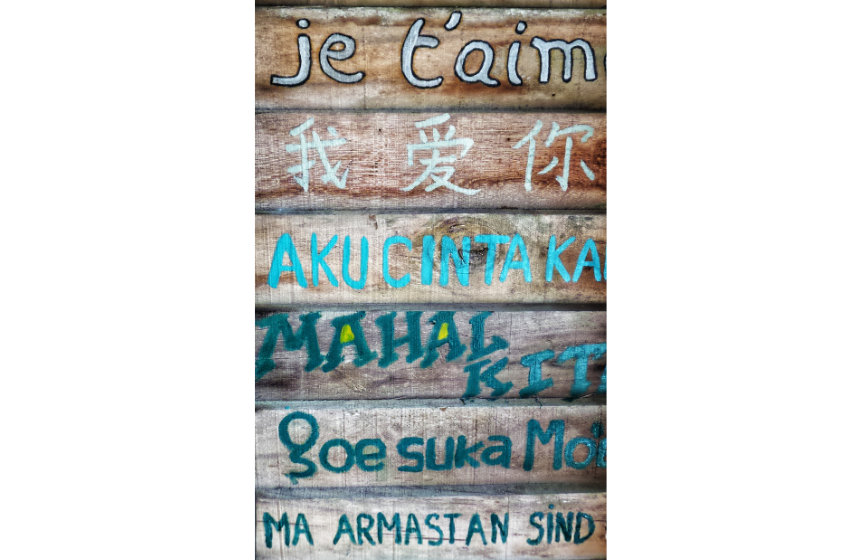 je t'aim
我爱你
AKU CINTA KA
MAHAL
KIT
goe suka Mo
MA ARMASTAN SIND